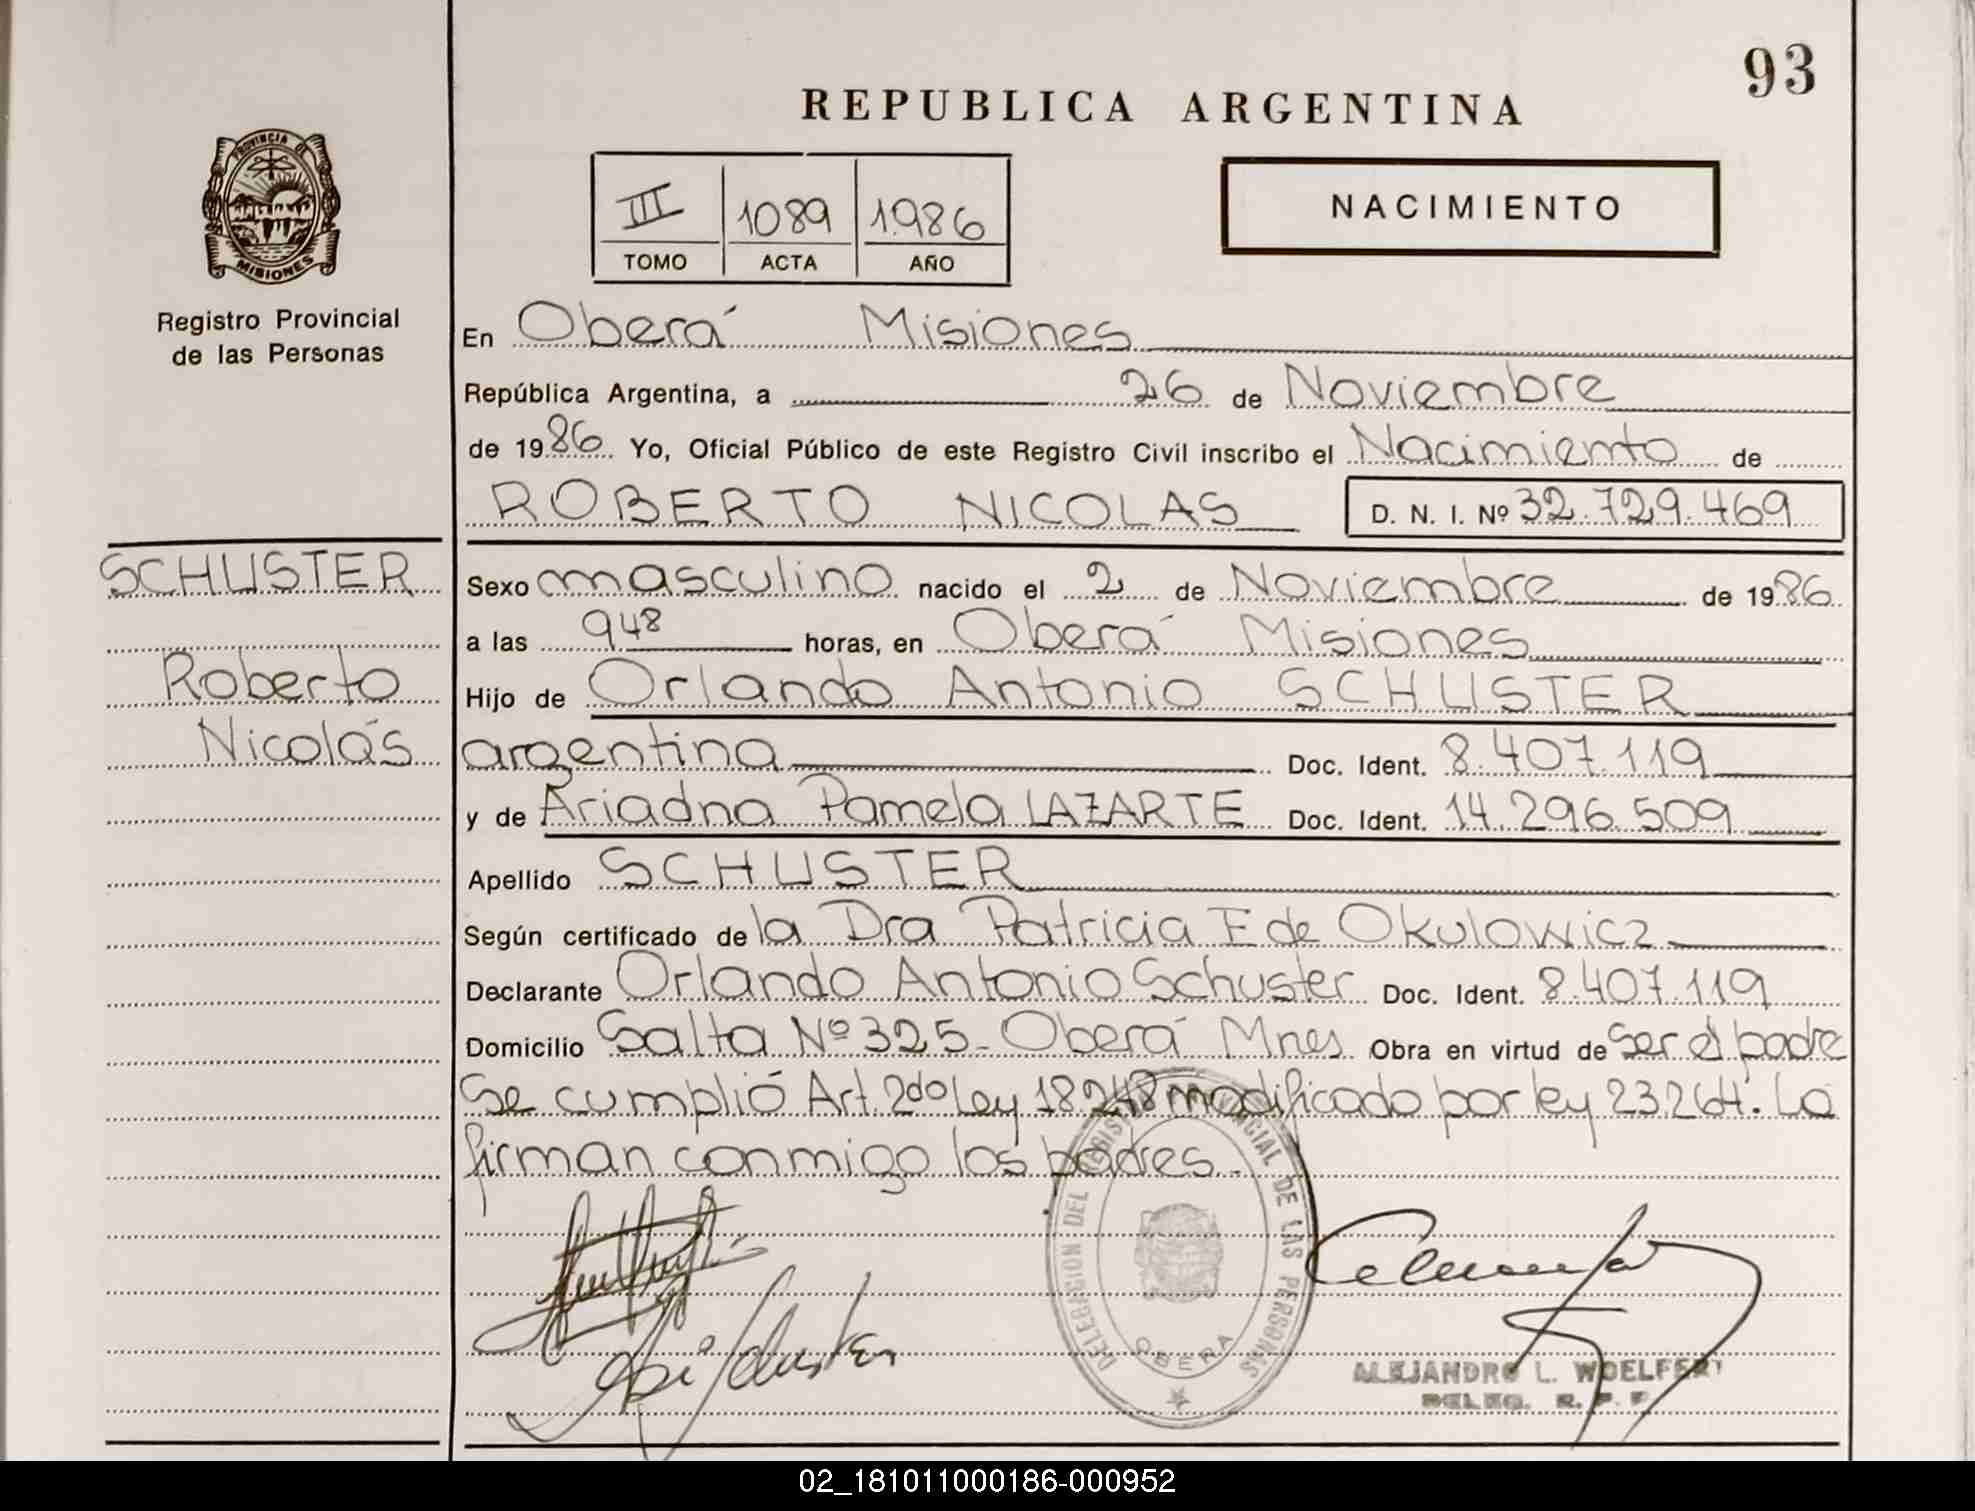 93
REPUBLICA ARGENTINA
PROVINCIA DE
MISIONES
Registro Provincial
de las Personas
III 1089 1.986
TOMO ACTA AÑO
NACIMIENTO
En Oberá Misiones
República Argentina, a 26 de Noviembre
de 1986 Yo, Oficial Público de este Registro Civil inscribo el Nacimiento de
ROBERTO NICOLAS D. N. I. Nº 32.729.469
SCHUSTER
Roberto
Nicolás
Sexo masculino nacido el 2 de Noviembre de 1986
a las 9 48 horas, en Oberá Misiones
Hijo de Orlando Antonio SCHUSTER
argentina Doc. Ident. 8.407.119
y de Ariadna Pamela LAZARTE Doc. Ident. 14.296.509
Apellido SCHUSTER
Según certificado de la Dra Patricia F de Okulowicz
Declarante Orlando Antonio Schuster Doc. Ident. 8.407.119
Domicilio Salta Nº 325 - Oberá Mnes Obra en virtud de ser el padre
Se cumplió Art. 2do Ley 18248 modificado por ley 23264. La
firman conmigo los padres.
DELEGACION DEL REGISTRO PROVINCIAL DE LAS PERSONAS
OBERA
ALEJANDRO L. WOELFERT
DELEG. R. P. P.
02_181011000186-000952